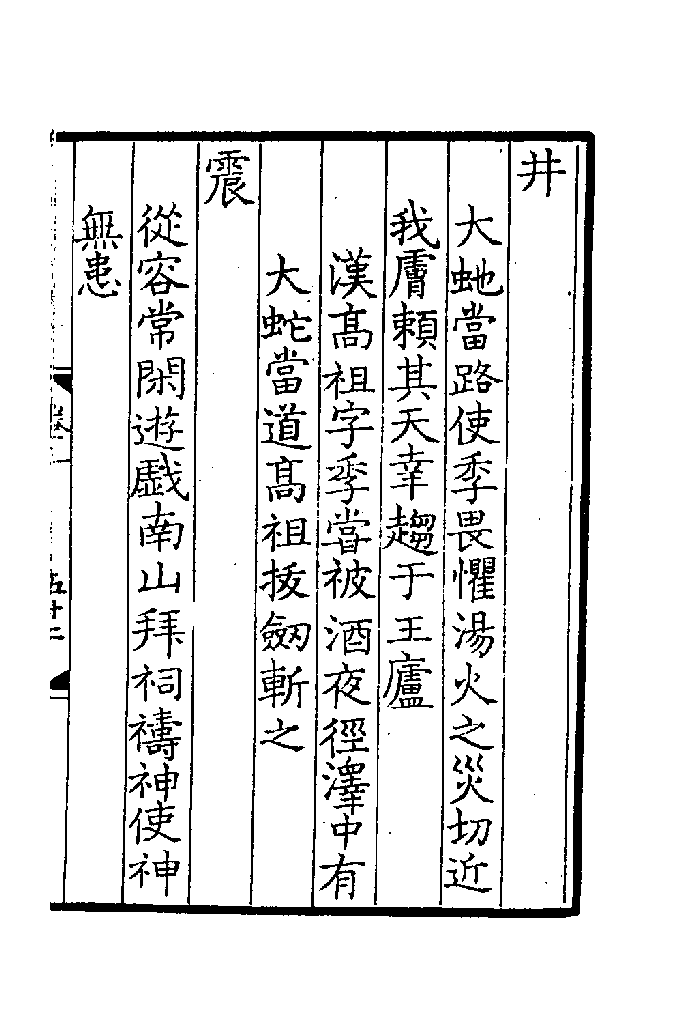 井
大虵當路使季畏懼湯火之災切近
我膚賴其天幸趨于王廬
漢髙祖字季嘗被酒夜徑澤中有
大蛇當道髙祖拔劔斬之
震
從容常閑遊戲南山拜祠禱神使神
無患